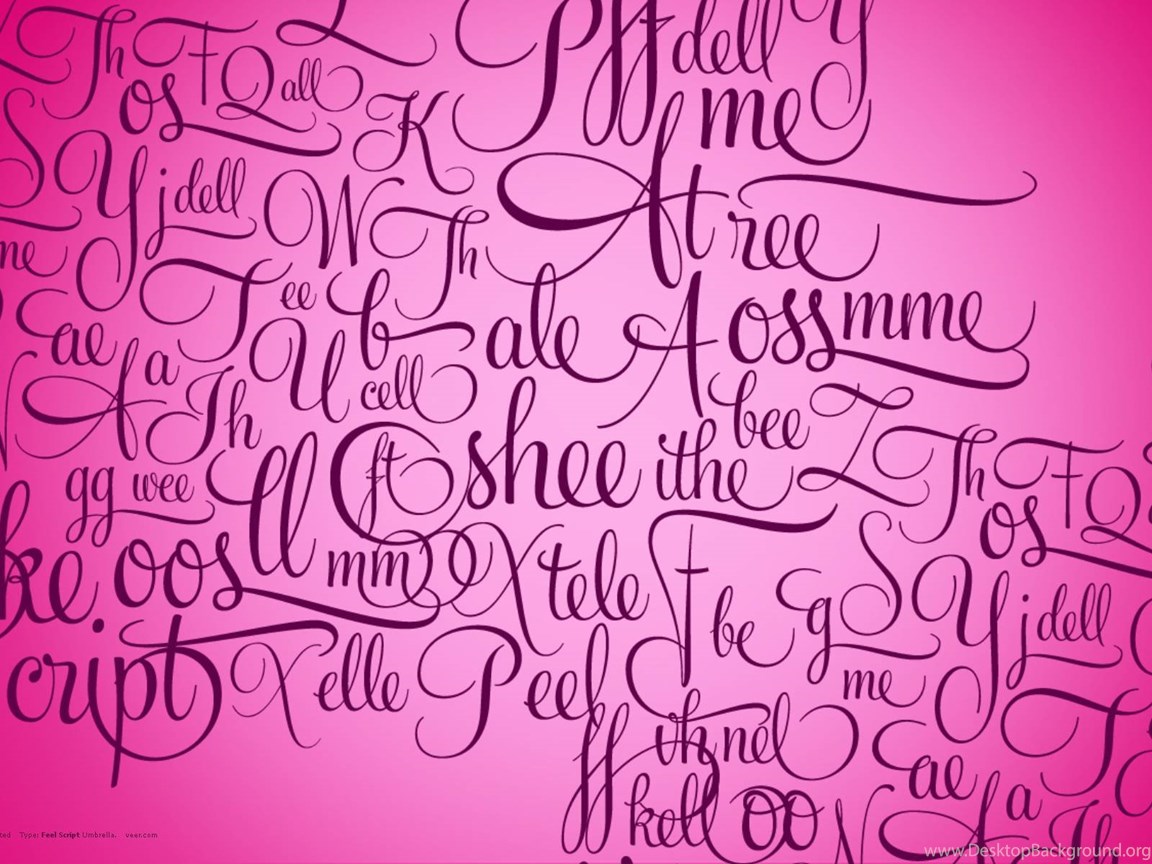 Th F Q all
os
K
P ff dell Y
me
S Y j dell W Th
At ree
me
T ee b ale A oss mme
ae f a U cell
A Th
bee Z
gg wee ll ft shee ithe Th F Q
os
ke oos mm X tele
be g S Y j dell
cript X elle P eel
me T
ff th nel
ae
kell oo N f a
Type: Feel Script Umbrella. veer.com
www.DesktopBackground.org